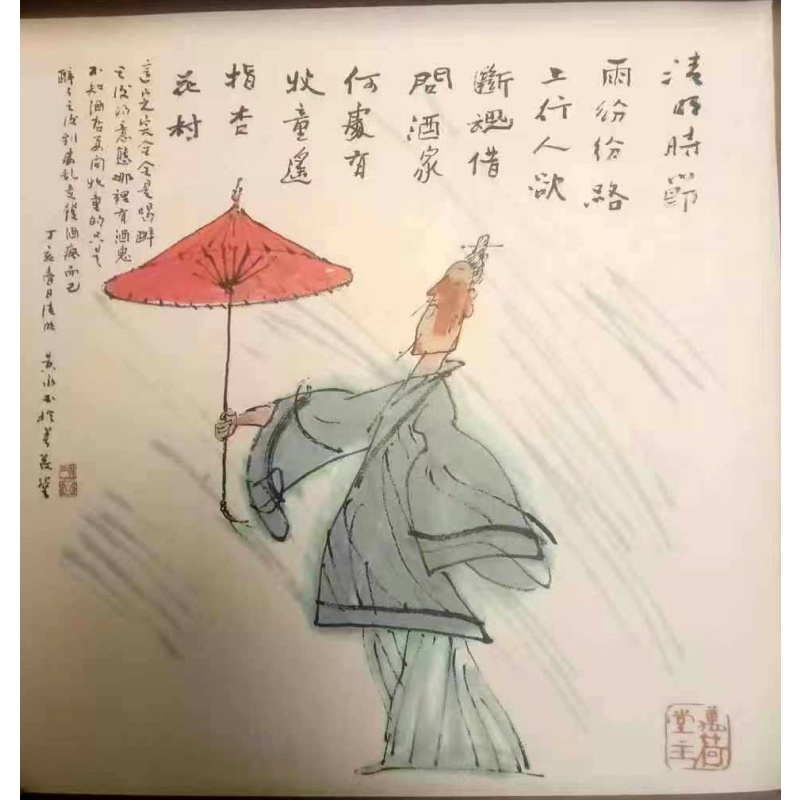 清明時節
雨纷纷路
上行人欲
斷魂借
問酒家
何處有
牧童遙
指杏
花村
這完完全全是喝醉
之後的意態哪裡有酒鬼
不知酒店要問牧童的只是
醉了之後到處亂走發酒瘋而已
丁亥春日清明 黃永玉於萬荷堂
萬荷
堂主